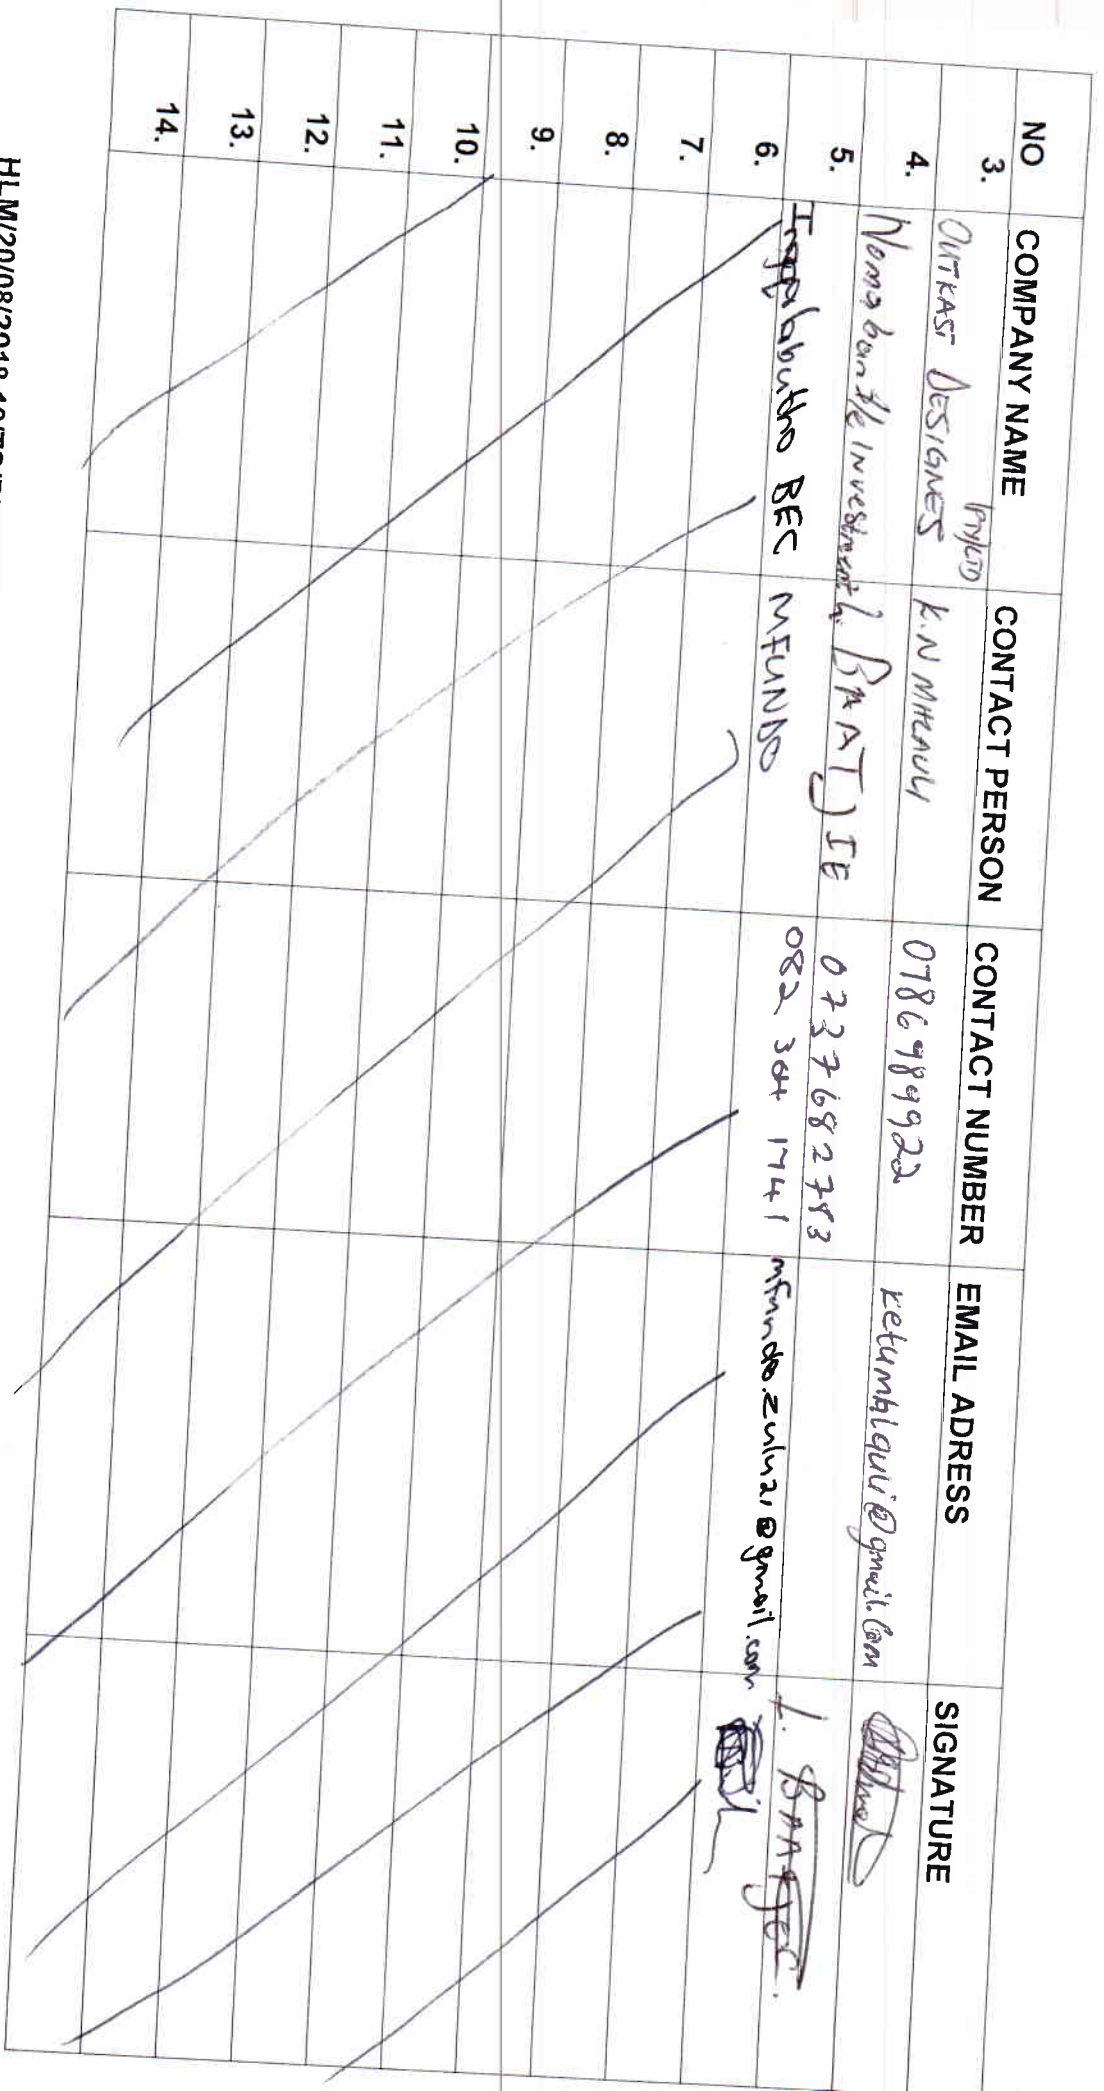 NO COMPANY NAME CONTACT PERSON CONTACT NUMBER EMAIL ADRESS SIGNATURE
3. OUTKAST DESIGNES (PTY)LTD K.N MHLAULI 0786989922 ketumhlauli@gmail.com
4. Nomabantle Investment L. BAATJIE 0737682783 L. BAATJIE.
5. BEC MFUNDO 082 304 1741 mfundo.zulu21@gmail.com
6.
7.
8.
9.
10.
11.
12.
13.
14.